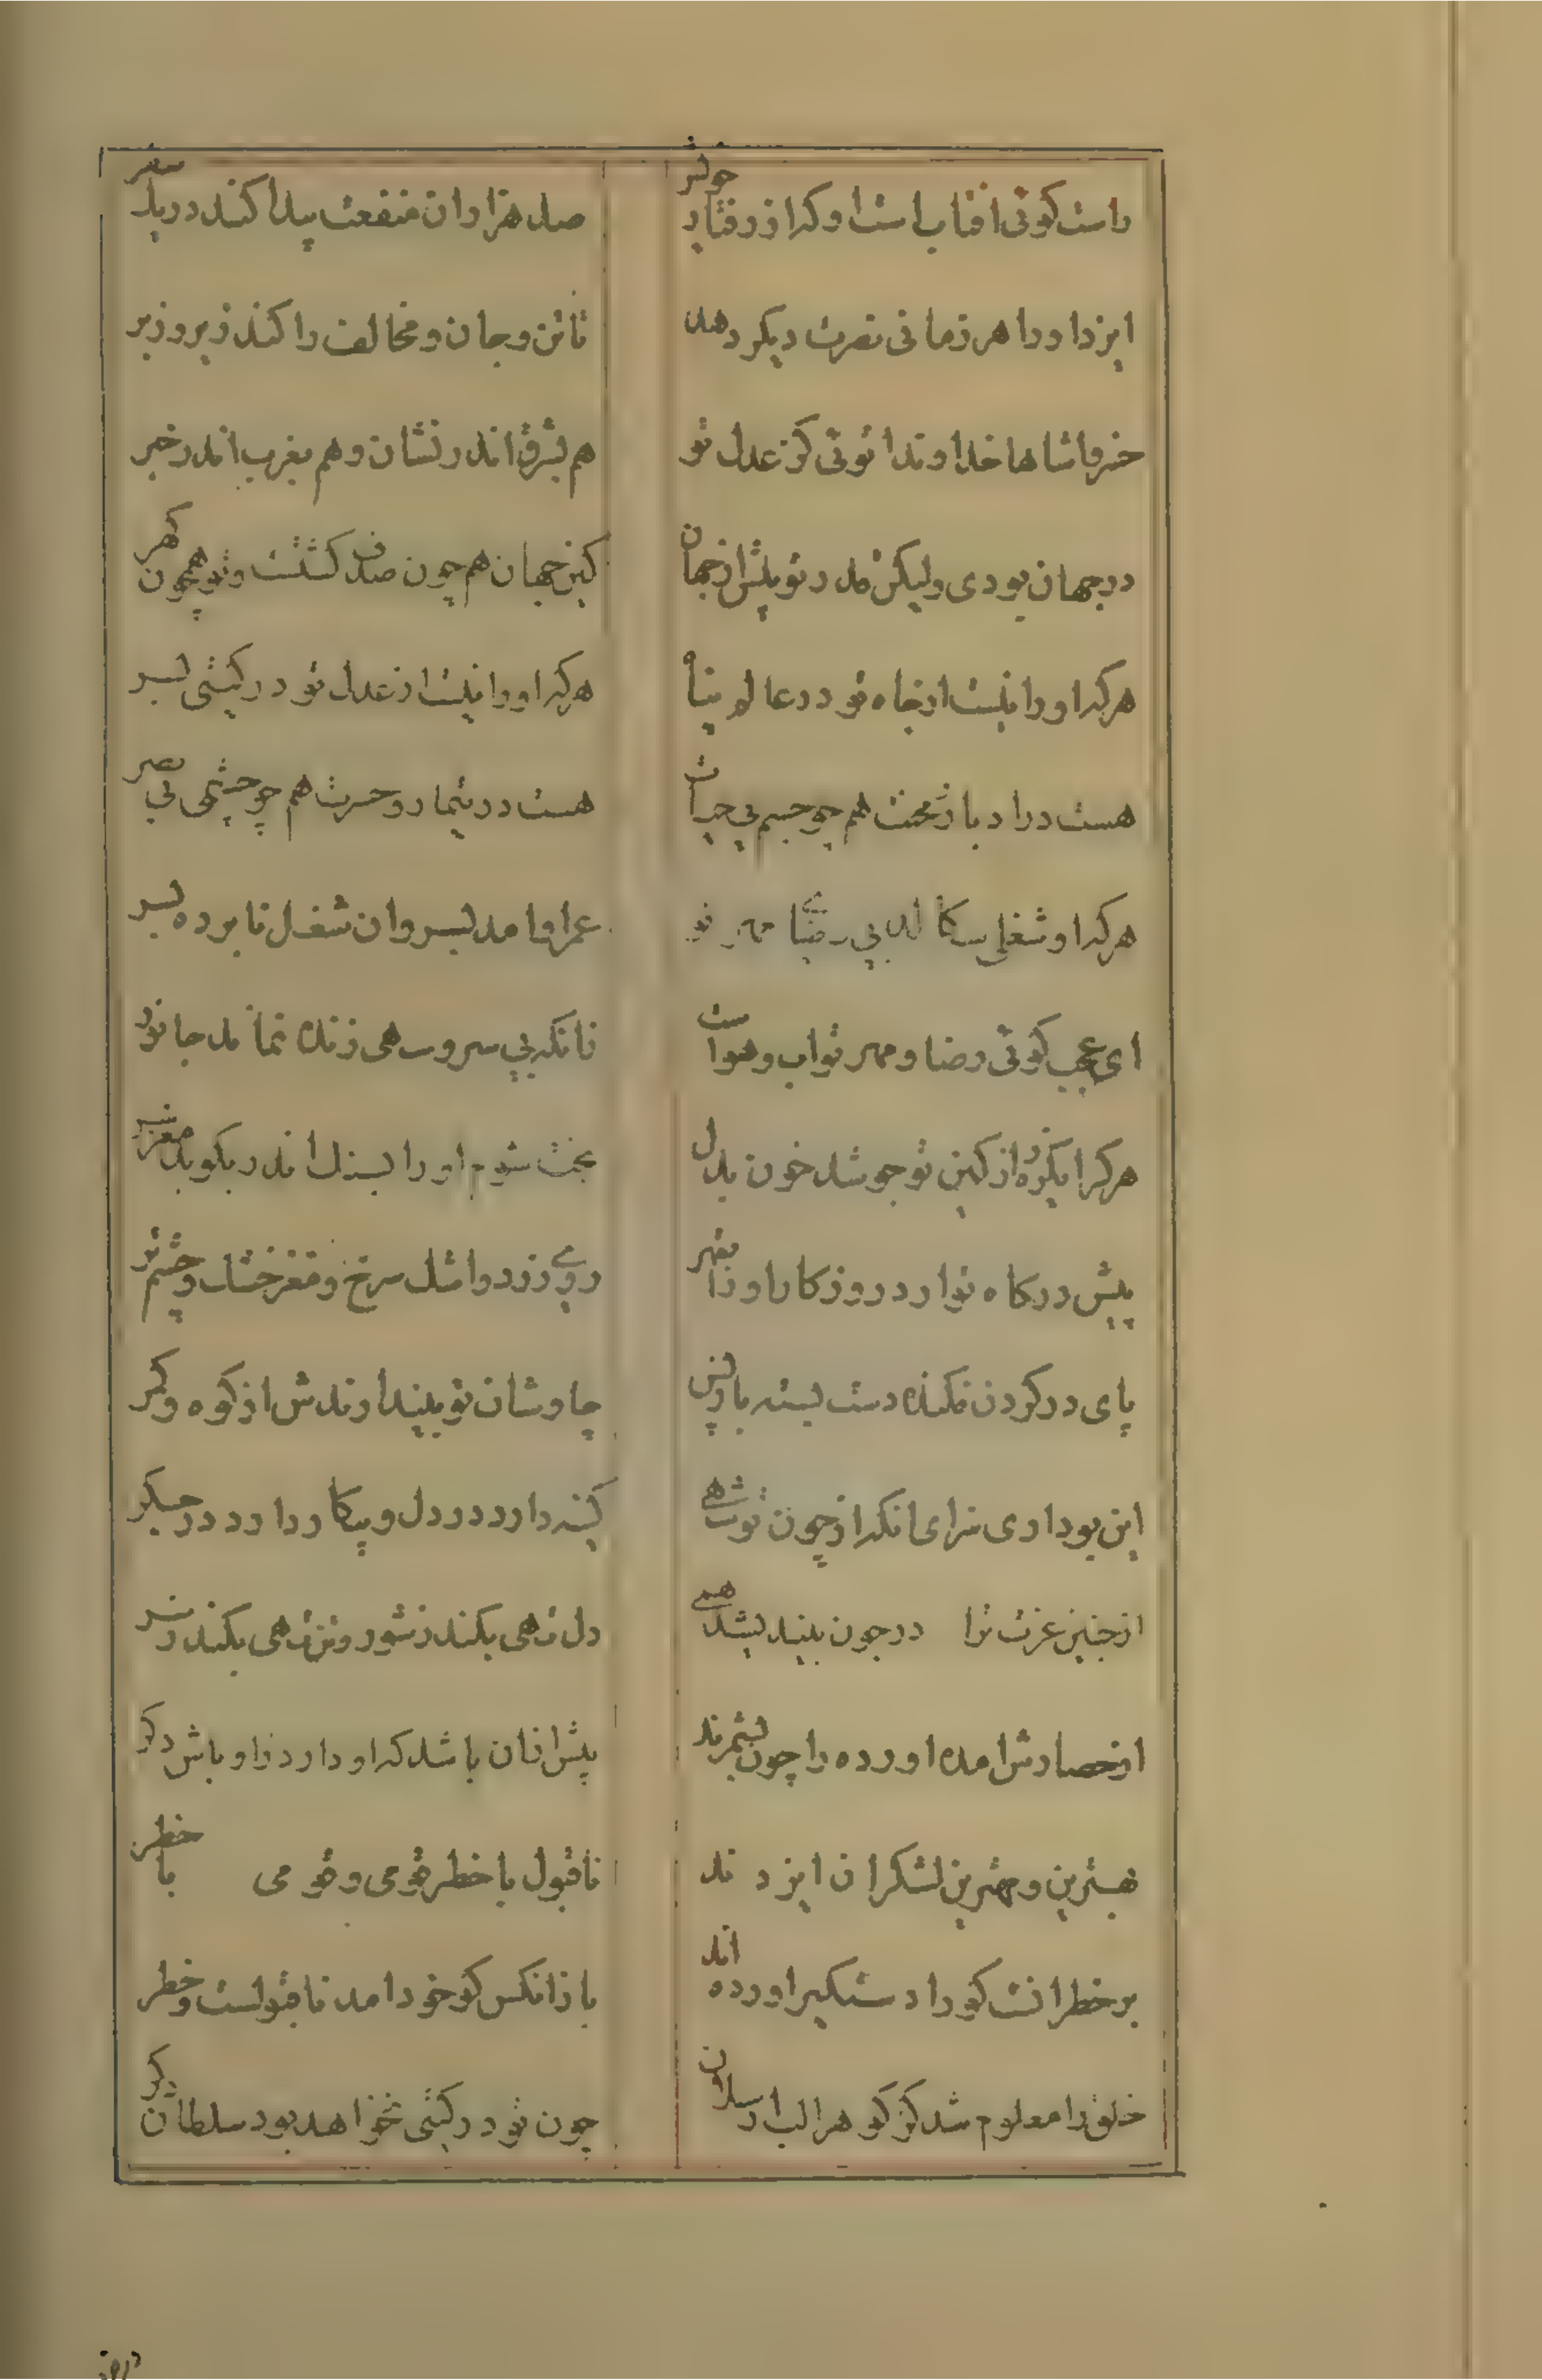 راست کوئی افتاب است او کز افزر فتار خویش
صد هزاران منفعت پیدا کند در یک سفر
ایزد او را هر زمانی نصرت دیکر دهد
تا تن و جان و مخالف را کند زیر و زبر
خسروا شاها خداوندا توئی کز عدل تو
هم بشرق اندر نشان و هم بغرب اندر خبر
در جهان بودی ولیکن قدر تو بیش از جهان
کین جهان هم چون صدف کشتست و تو همچون کهر
هرکه او را نیست از جاه تو در عالم پناه
هرکه او را نیست از عدل تو در کیتی
هست در ادبار محنت هم چو جسم بی حیات
هست در تیمار و حسرت هم چو چشمی بی بصر
هرکه او شغلی سکالد بی رضای مهر تو
عمر او امد بسر وان شغل نابرده بسر
ای عجب کوئی رضا و مهر تو اب و هواست
زانکه بی هر دو همی زنده نماند جانور
هرکرا یکره از کین تو جوشد خون بدل
بخت شوم او را بسنک اندر بکوبد مغز سر
پیش درکاه تو ارد روزکار او را بقهر
روی زرد و اشک سرخ و مغز خشک و چشم تر
پای در کردن فکنده دست بسته باز پس
چاوشان تو ببند ارندش از کوه و کمر
این بود اری سزای انکه از چون تو شهی
کینه دارد در دل و پیکار دارد در جکر
از چنین عزت ترا در چون ببیند لشکر همی
دل همی بکند ز شور و تن همی بکند ز شر
از حصارش امده اورده را چون بشمرند
بیش از ان باشد که او دارد ز اوباش دکر
بهترین و مهترین لشکران ایزد ند
ناقبول با خطر قومی و قومی با خطر
بر خطر انست کورا دستکیر اورده اند
باز انکس کو خود امد ناقبولست و خطر
خلق را معلوم شد کز کوهر الب ارسلان
چون تو در کیتی نخواهد بود سلطان دکر